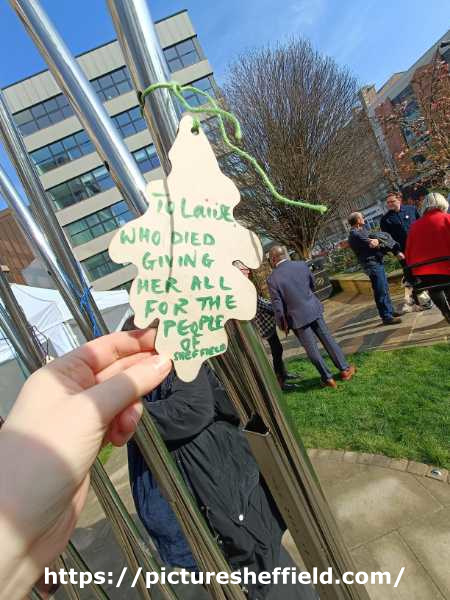 TO Laiise
WHO DIED
GIVING
HER ALL
FOR THE
PEOPLE
OF
SHEFFIELD
https://picturesheffield.com/